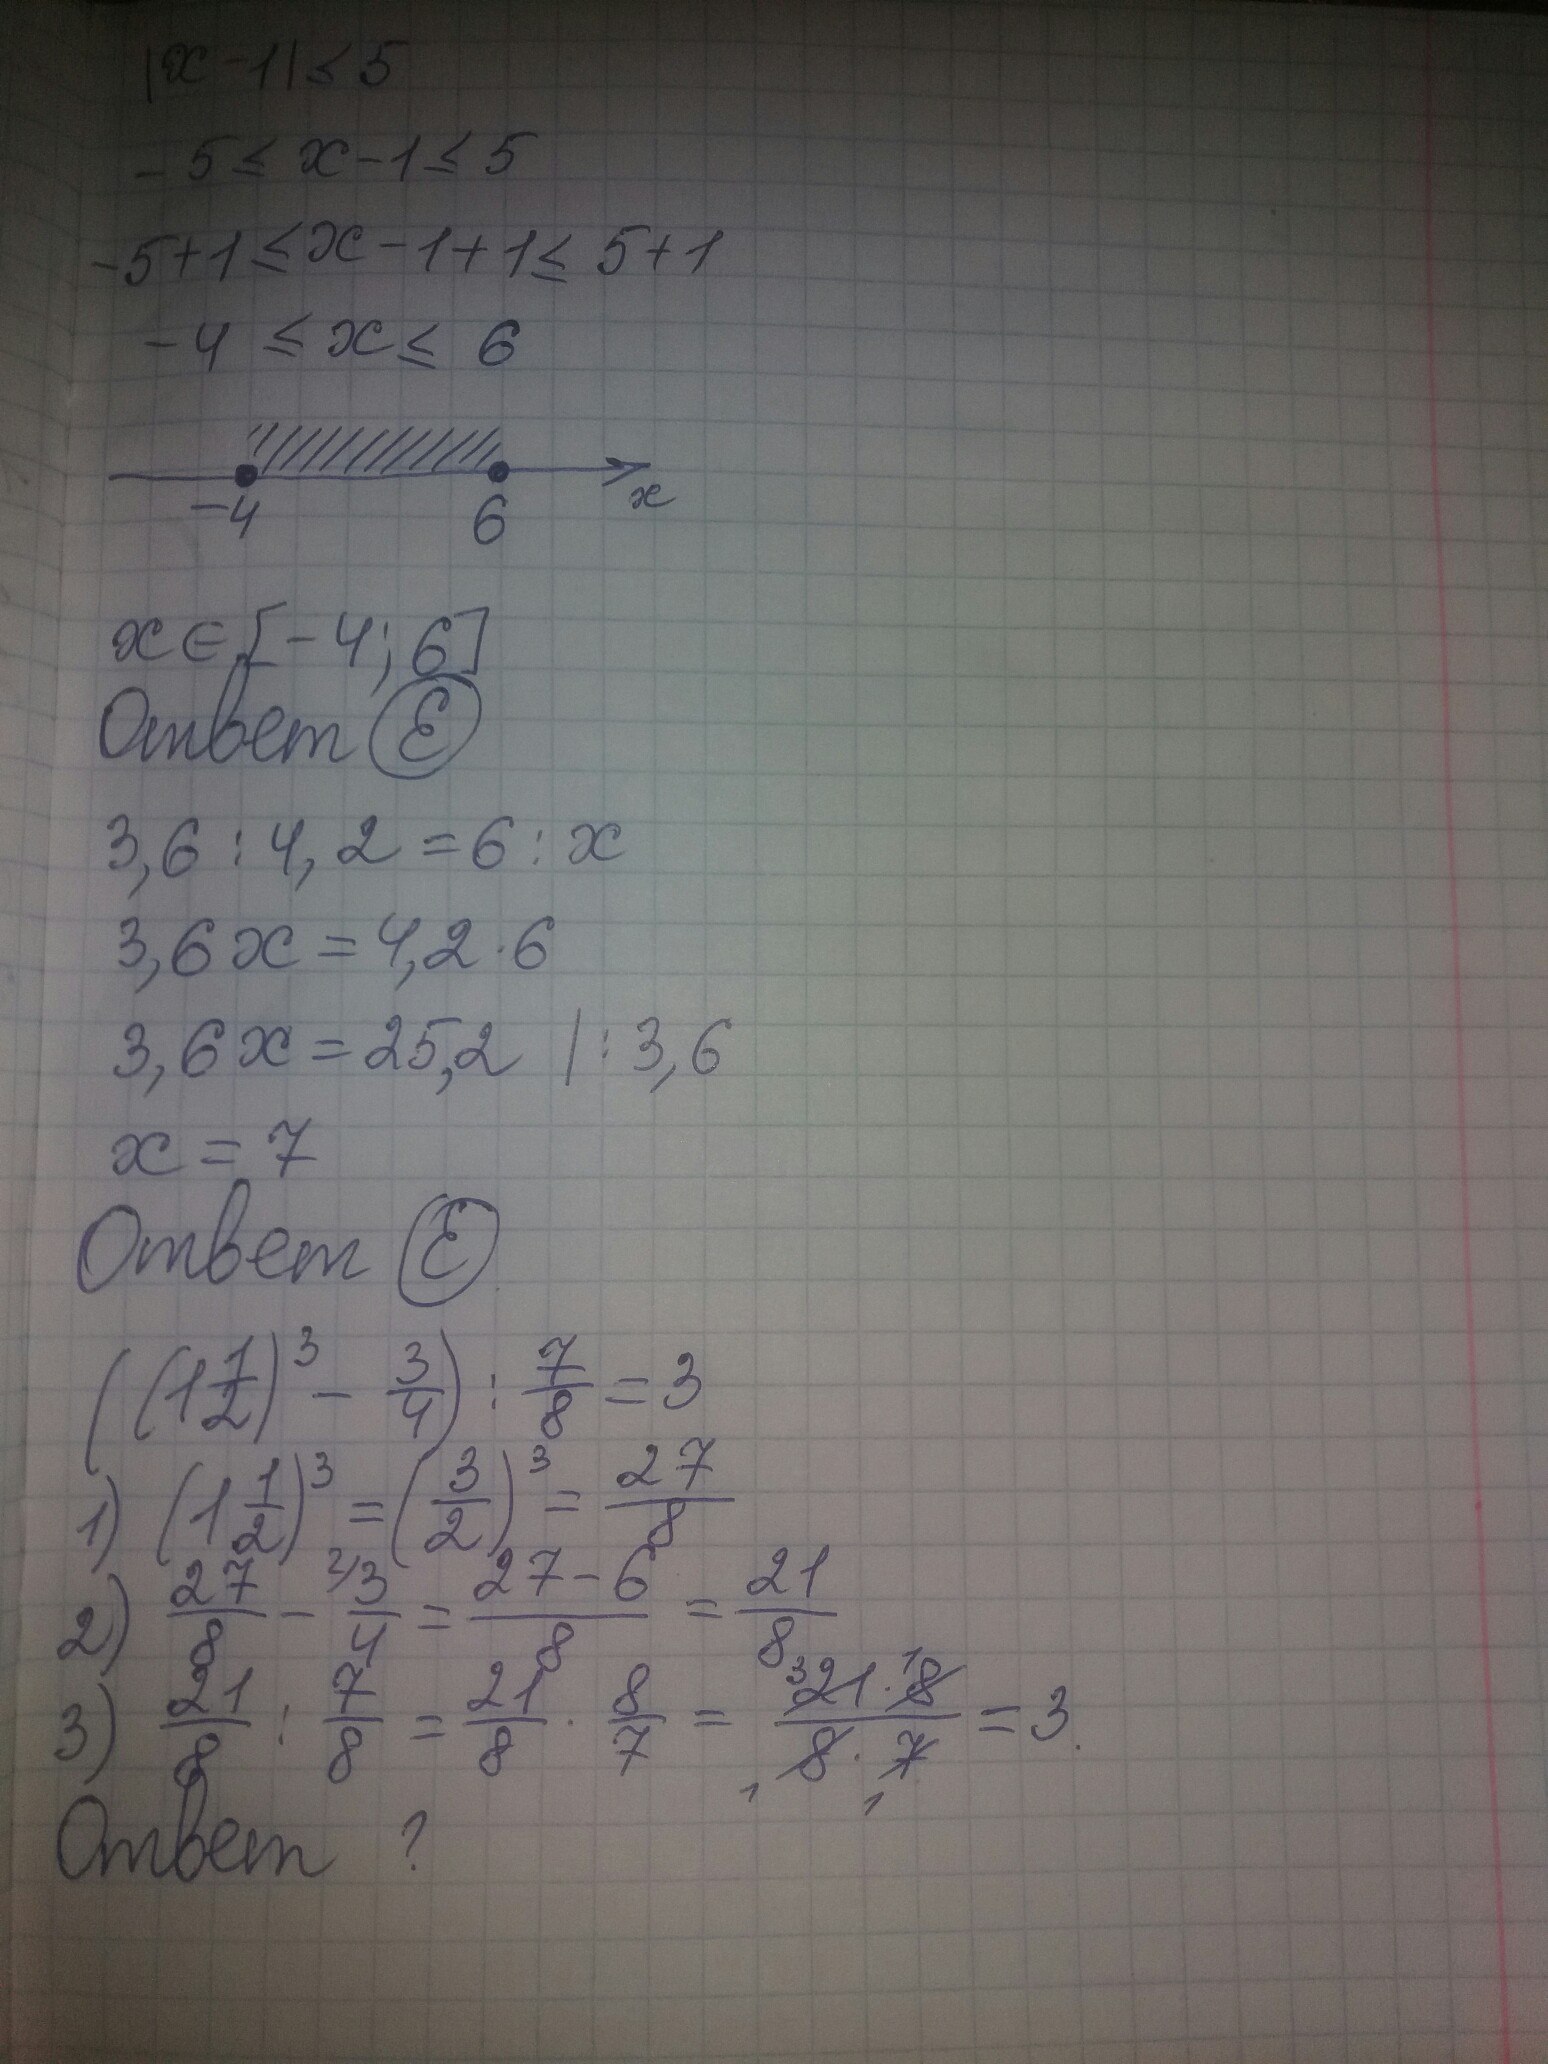 |x-1|≤5
-5≤x-1≤5
-5+1≤x-1+1≤5+1
-4≤x≤6
-4 6 x
x∈[-4;6]
Ответ E
3,6:4,2=6:x
3,6x=4,2·6
3,6x=25,2 |:3,6
x=7
Ответ E
((1 1/2)³ - 3/4) : 7/8 = 3
1) (1 1/2)³ = (3/2)³ = 27/8
2) 27/8 - ²⁾3/4 = (27-6)/8 = 21/8
3) 21/8 : 7/8 = 21/8 · 8/7 = (³21·¹8)/(₁8·7₁) = 3.
Ответ ?